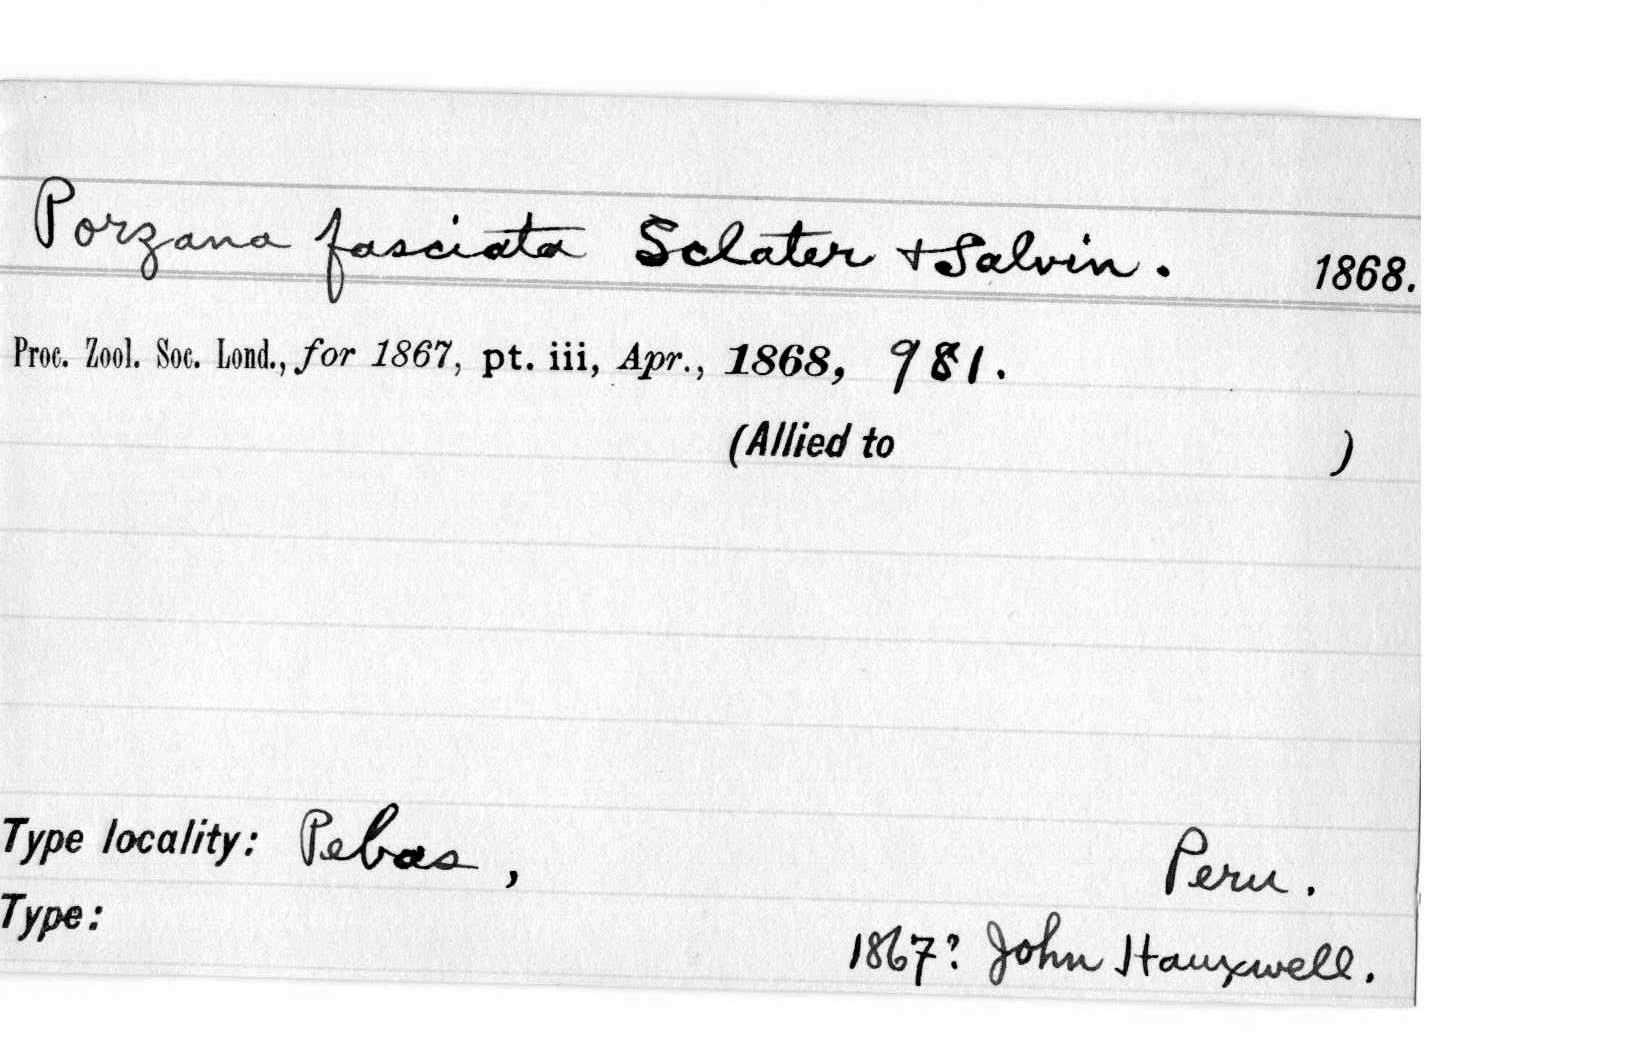 Porzana fasciata Sclater + Salvin. 1868.
Proc. Zool. Soc. Lond., for 1867, pt. iii, Apr., 1868, 981.
(Allied to )
Type locality: Pebas, Peru.
Type: 1867? John Hauxwell.